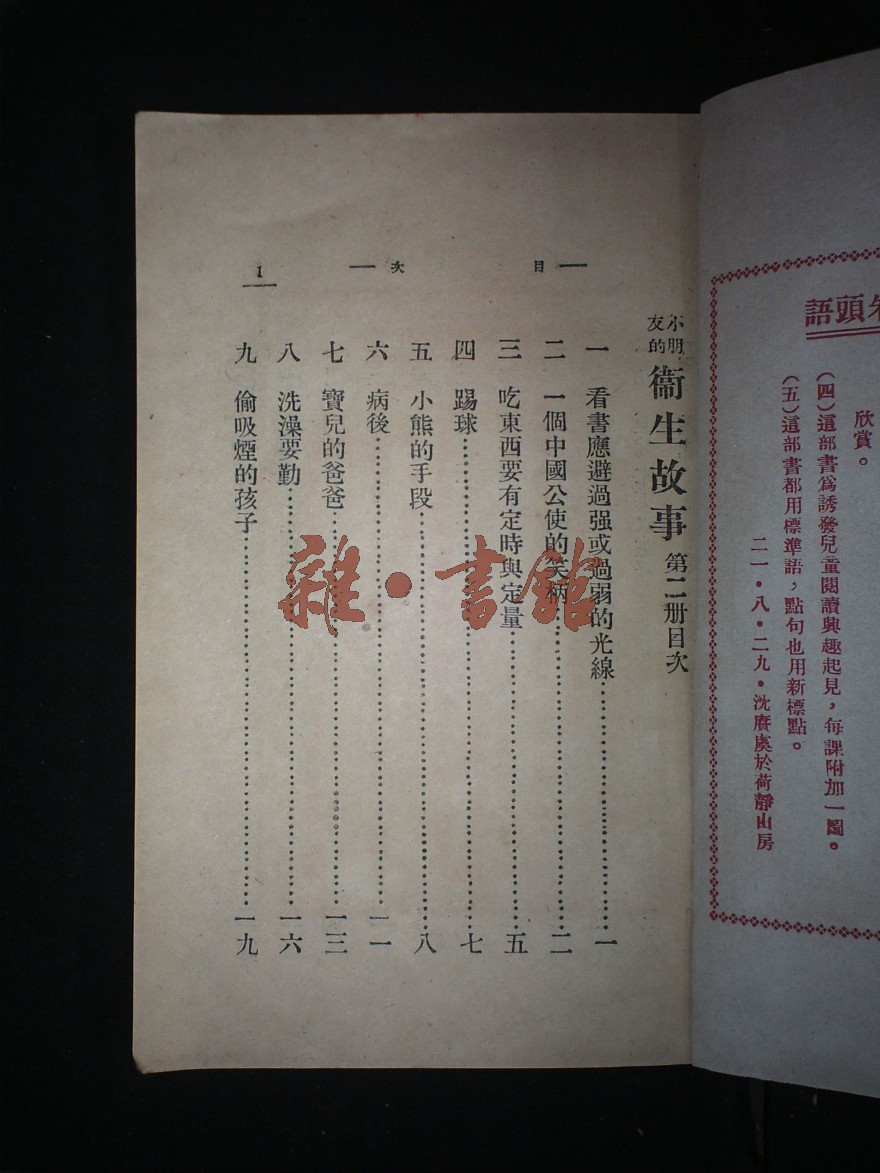 卷頭語
欣賞。
(四)這部書爲誘發兒童閱讀興趣起見，每課附加一圖。
(五)這部書都用標準語，點句也用新標點。
二一・八・二九・沈賡虞於荷靜山房
目次
1
小朋友的 衞生故事 第二册目次
一 看書應避過强或過弱的光線……一
二 一個中國公使的笑柄……二
三 吃東西要有定時與定量……五
四 踢球……七
五 小熊的手段……八
六 病後……一一
七 寶兒的爸爸……一三
八 洗澡要勤……一六
九 偷吸煙的孩子……一九
雜・書館